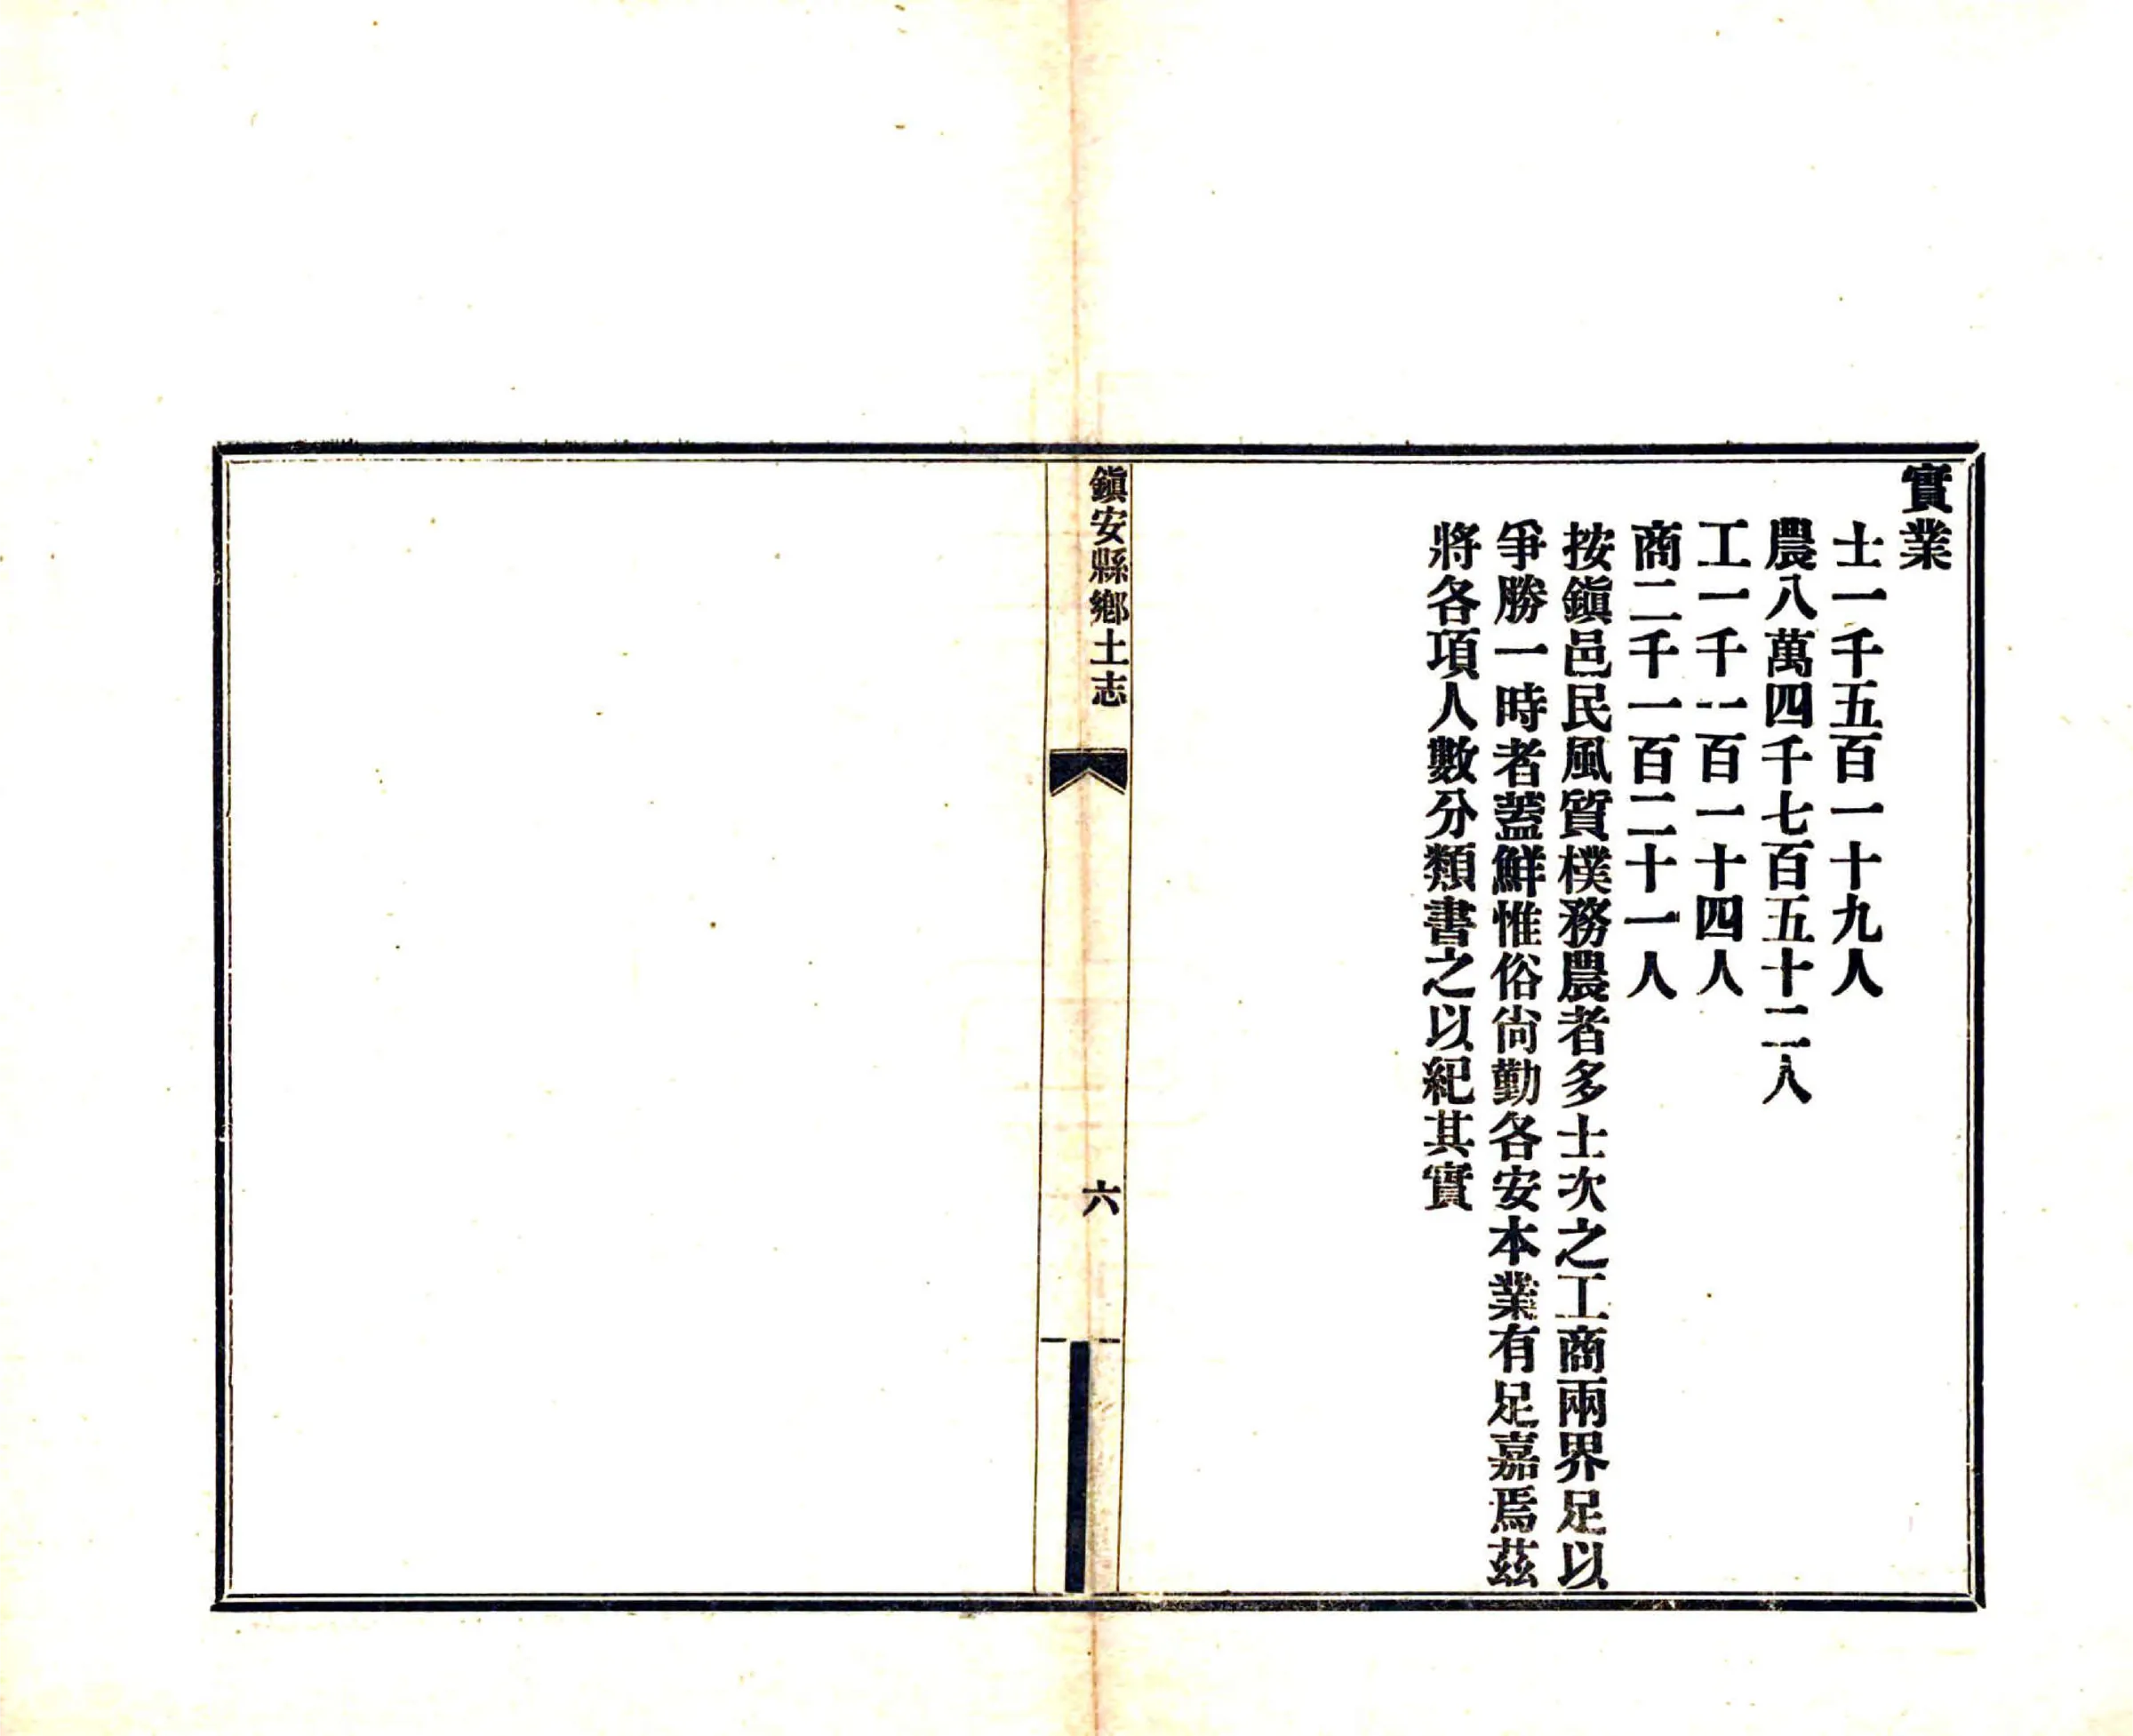 實業
士一千五百一十九人
農八萬四千七百五十二人
工一千二百一十四人
商二千一百二十一人
按鎭邑民風質樸務農者多士次之工商兩界足以
爭勝一時者蓋鮮惟俗尙勤各安本業有足嘉焉茲
將各項人數分類書之以紀其實
鎭安縣鄕土志
六